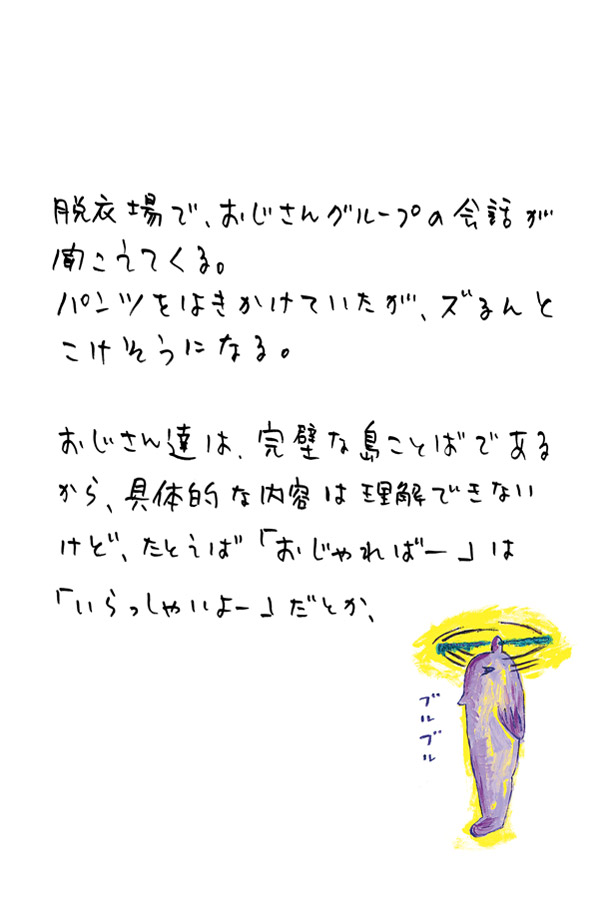 脱衣場で、おじさんグループの会話が
聞こえてくる。
パンツをはきかけていたが、ズるんと
こけそうになる。
おじさん達は、完璧な島ことばである
から、具体的な内容は理解できない
けど、たとえば「おじゃればー」は
「いらっしゃいよー」だとか、
ブルブル